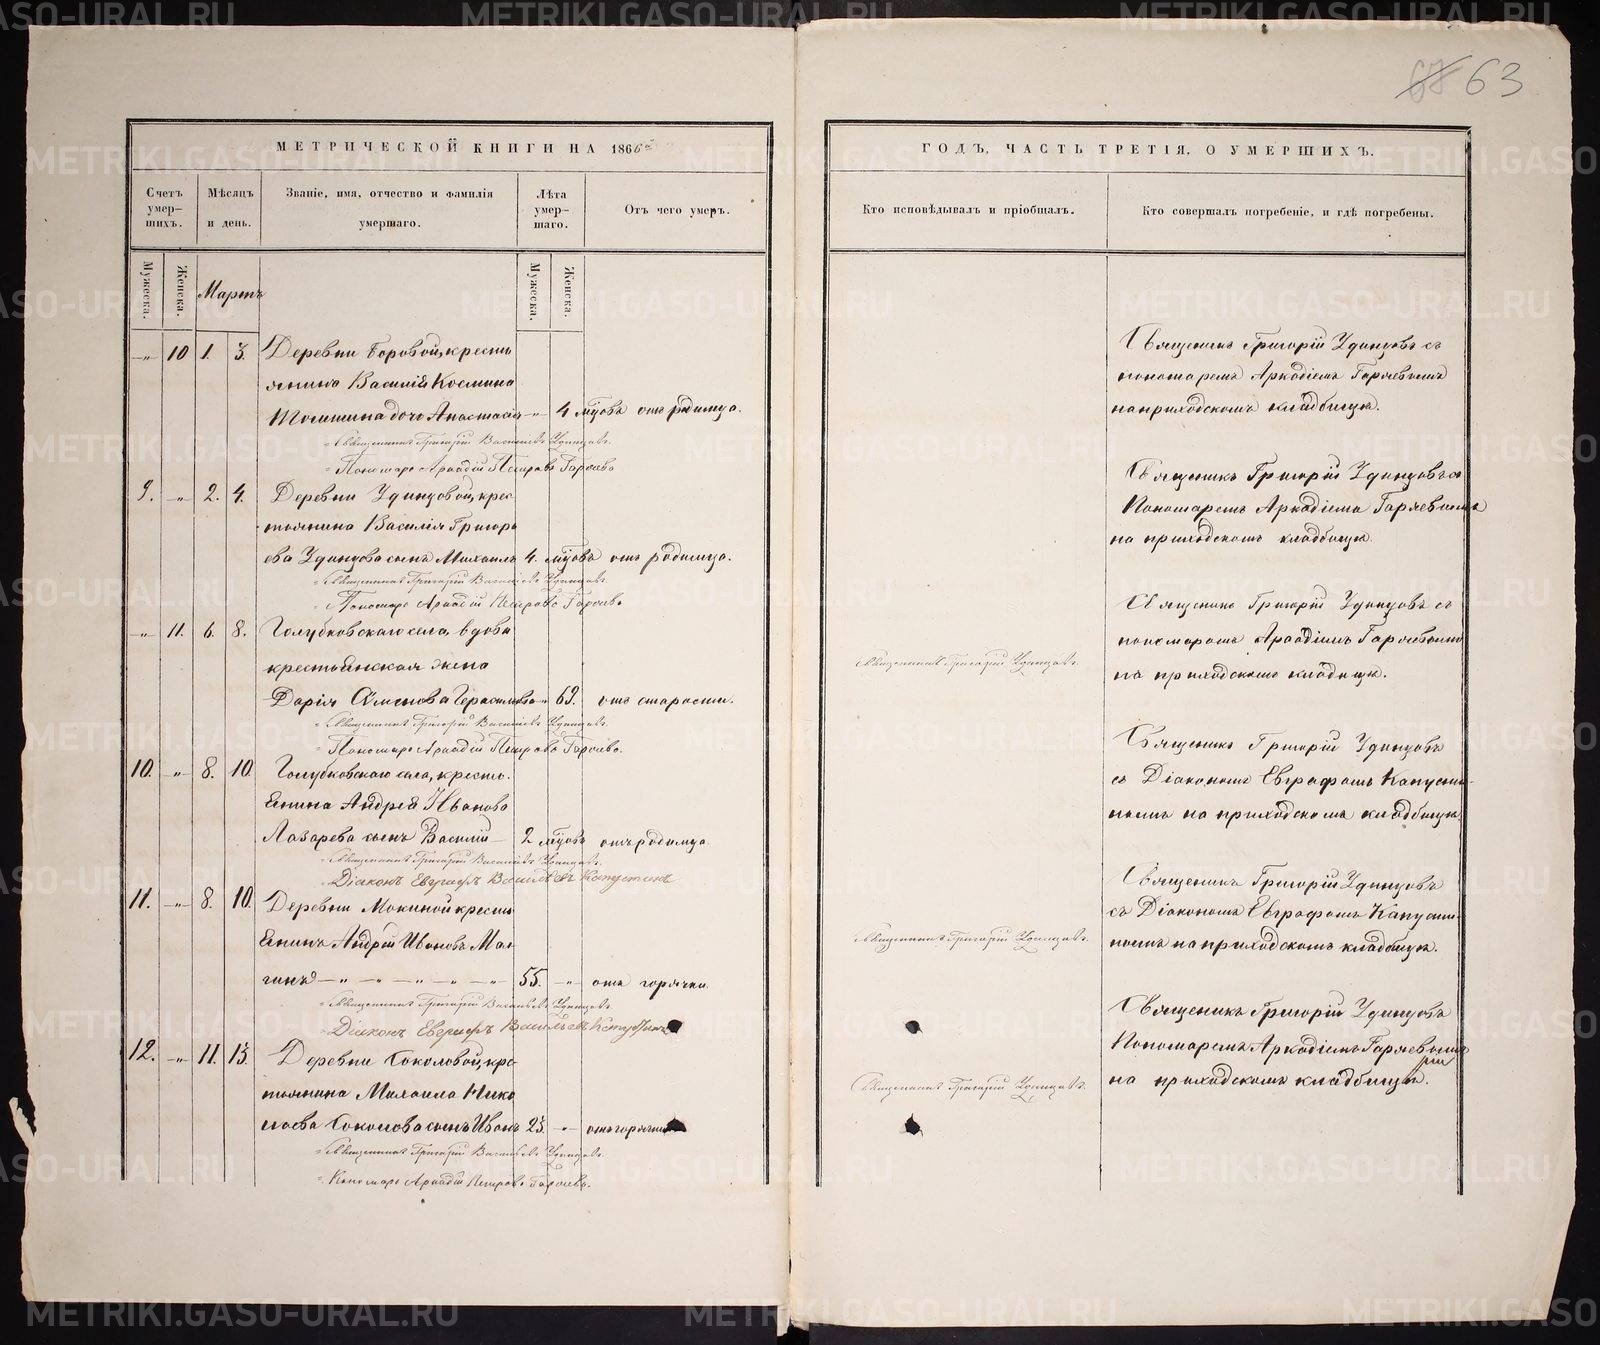 63
МЕТРИЧЕСКОЙ КНИГИ НА 1866й
Счетъ умер-шихъ.
Мѣсяцъ и день.
Званіе, имя, отчество и фамилія умершаго.
Лѣта умер-шаго.
Отъ чего умеръ.
Мужеска.
Женска.
Мартъ
Мужеска.
Женска.
-„- 10 1. 3. Деревни Боровой, кресть
янина Василія Космина
дочь Анастасія -„- 4 мѣсѣ отъ родимца.
Священникъ Григорій Васильевъ Удинцовъ.
Пономарь Аркадій Петровъ Гаряевъ
9. -„- 2. 4. Деревни Удинцовой, крес
тьянина Василія Григорь
ева Удинцова сынъ Михаилъ 4. мѣсѣ отъ родимца.
Священникъ Григорій Васильевъ Удинцовъ.
Пономарь Аркадій Петровъ Гаряевъ
-„- 11. 6. 8. Голубковскаго села, вдова
крестьянская жена
Дарія Семенова 69. отъ старости.
Священникъ Григорій Васильевъ Удинцовъ.
Пономарь Аркадій Петровъ Гаряевъ.
10. -„- 8. 10. Голубковскаго села, кресть-
янина Андрея Иванова
Лазарева сынъ Василій 2 мѣсѣ отъ родимца
Священникъ Григорій Васильевъ Удинцовъ.
Діаконъ Евграфъ Васильевъ Капустинъ
11. -„- 8. 10. Деревни Мокиной кресть
янинъ Андрей Ивановъ Мал-
гинъ -„- -„- -„- -„- 55. -„- отъ горячки.
Священникъ Григорій Васильевъ Удинцовъ.
Діаконъ Евграфъ Васильевъ Капустинъ
12. -„- 11. 13. Деревни Соколовой, кре
тьянина Михаила Нико
лаева Соколова сынъ Иванъ 23. -„- отъ горячки
Священникъ Григорій Васильевъ Удинцовъ.
Пономарь Аркадій Петровъ Гаряевъ.
ГОДЪ, ЧАСТЬ ТРЕТІЯ, О УМЕРШИХЪ.
Кто исповѣдывалъ и пріобщалъ.
Кто совершалъ погребеніе, и гдѣ погребены.
Священникъ Григорій Удинцовъ съ
пономаремъ Аркадіемъ Гаряевымъ
на приходскомъ кладбищѣ.
Священникъ Григорій Удинцовъ съ
Пономаремъ Аркадіемъ Гаряевымъ
на приходскомъ кладбищѣ.
Священникъ Григорій Удинцовъ.
Священникъ Григорій Удинцовъ съ
пономаремъ Аркадіемъ Гаряевымъ
на приходскомъ кладбищѣ.
Священникъ Григорій Удинцовъ
съ Діакономъ Евграфомъ Капусти-
нымъ на приходскомъ кладбищѣ.
Священникъ Григорій Удинцовъ.
Священникъ Григорій Удинцовъ
съ Діакономъ Евграфомъ Капусти-
нымъ на приходскомъ кладбищѣ.
Священникъ Григорій Удинцовъ.
Священникъ Григорій Удинцовъ
Пономаремъ Аркадіемъ Гаряевымъ
на приходскомъ кладбищѣ.
METRIKI.GASO-URAL.RU